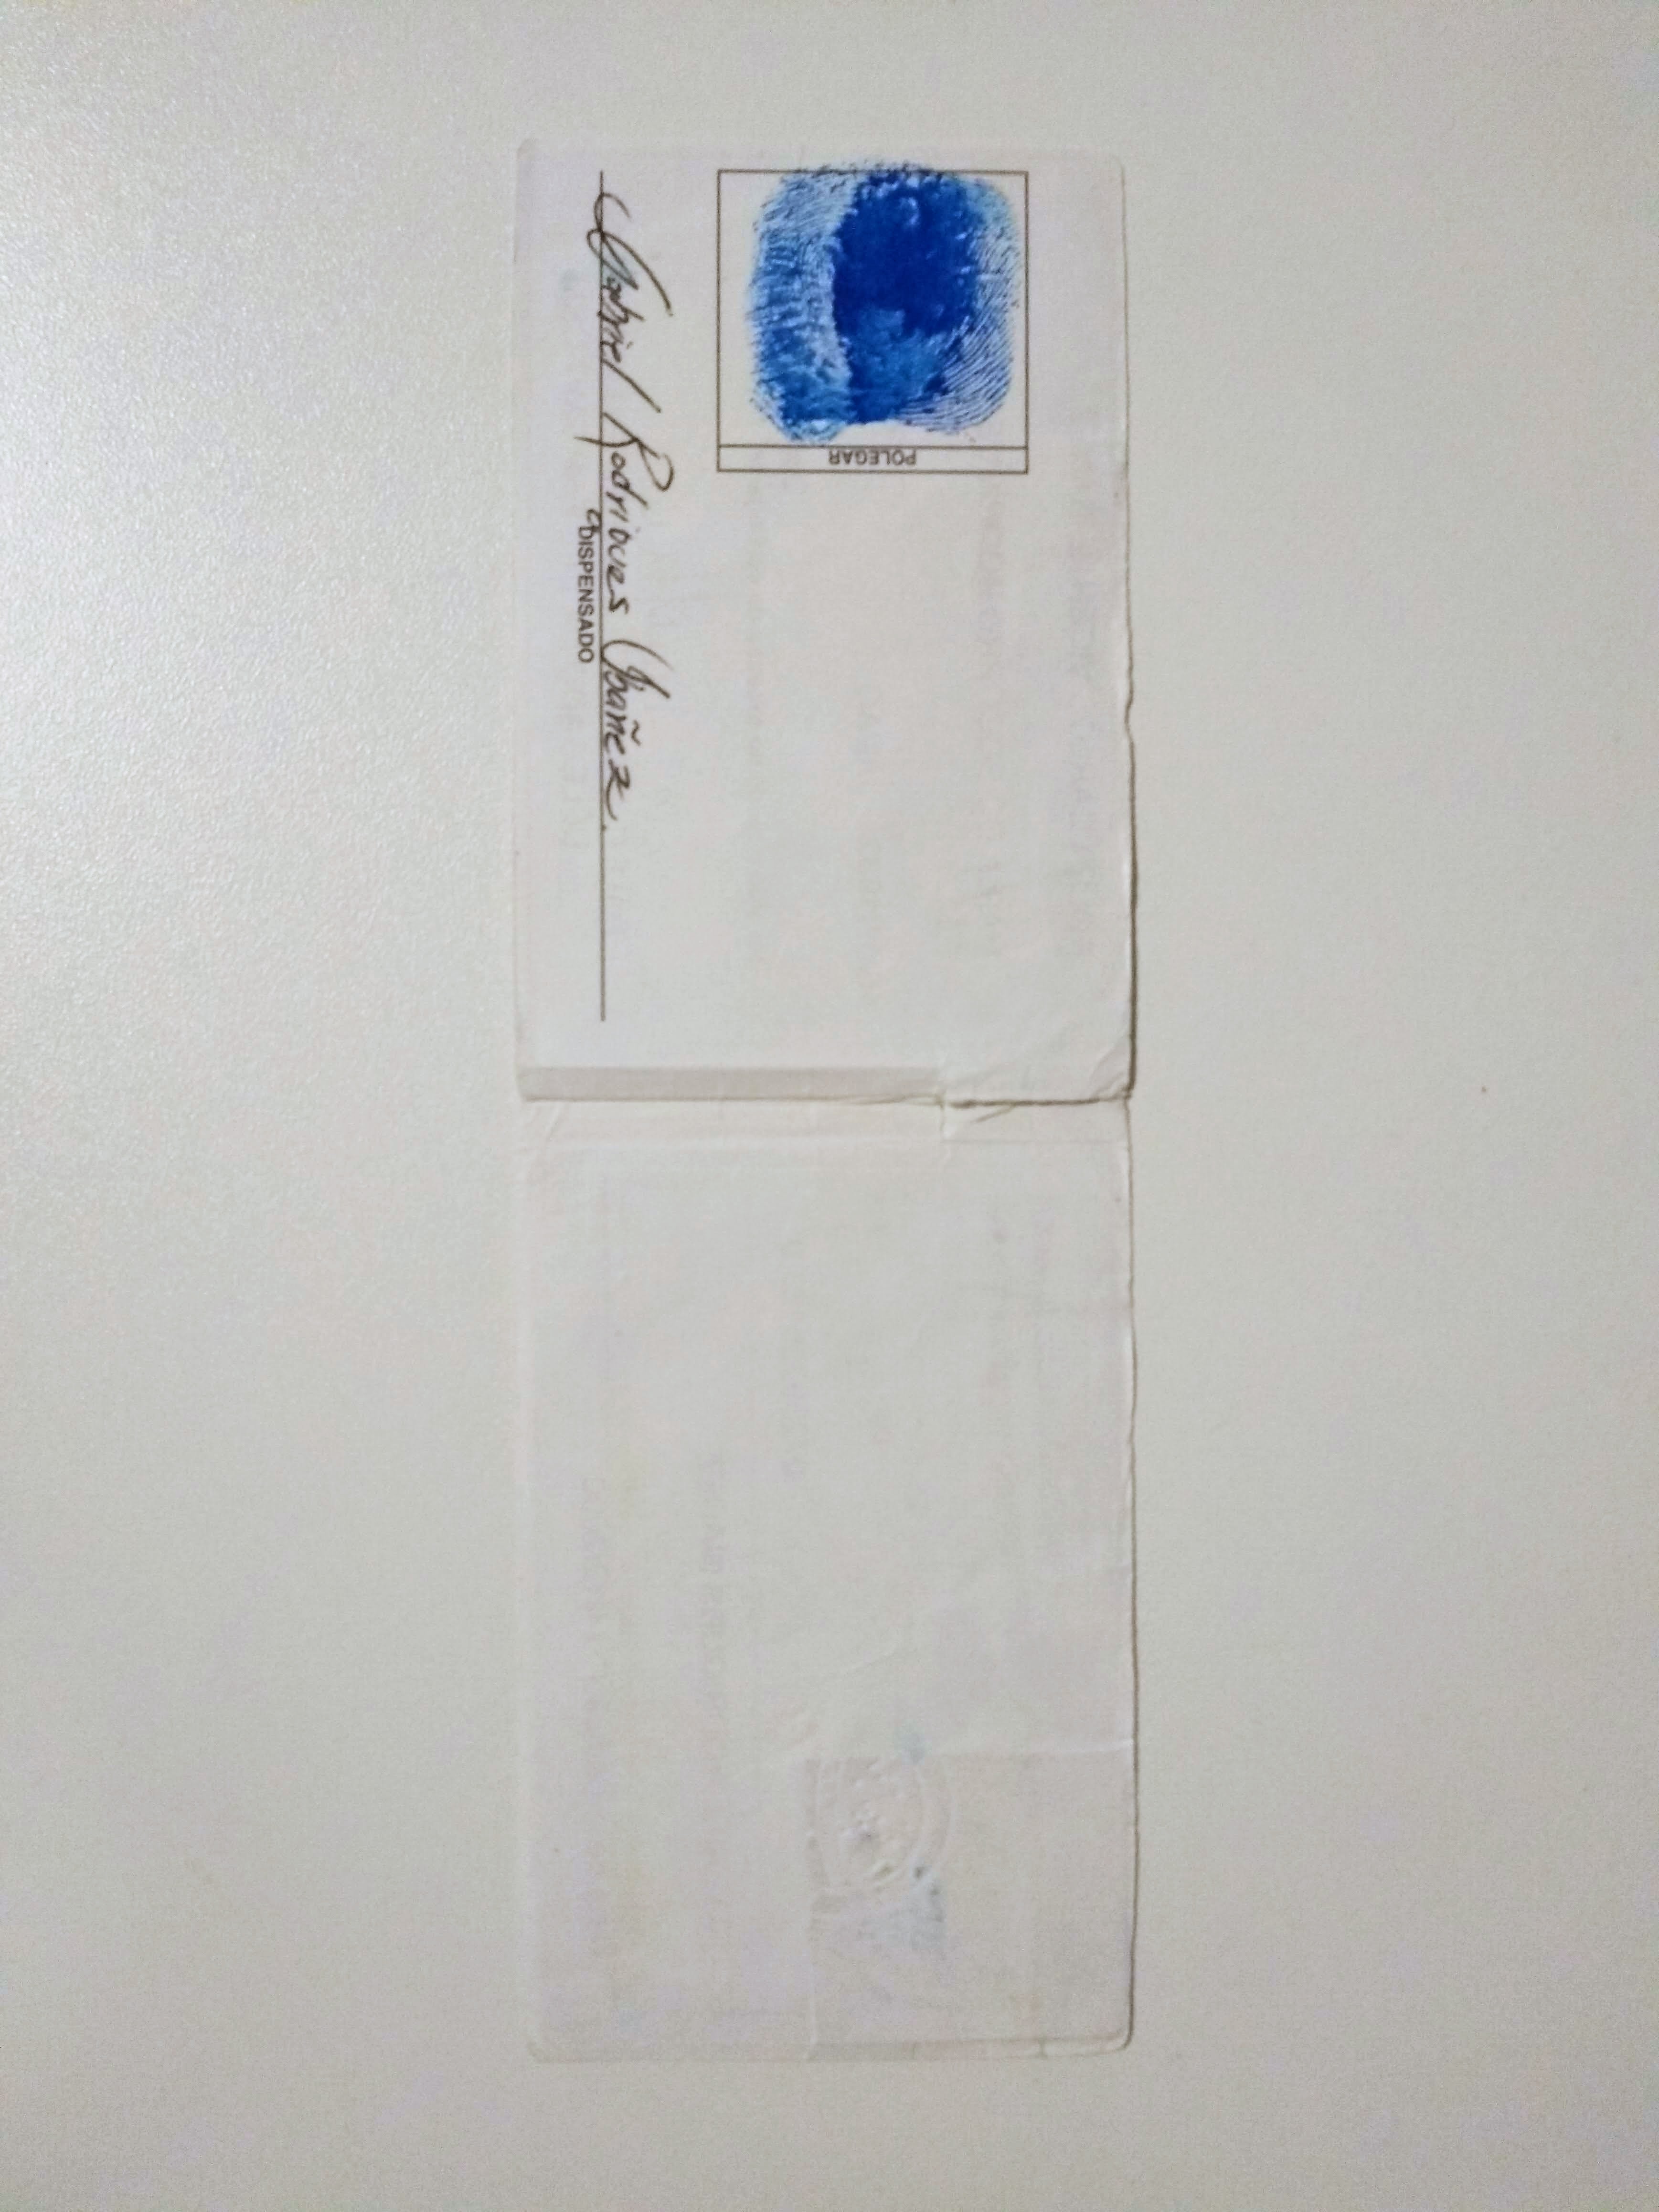 POLEGAR
Gabriel Rodrigues Ybañez.
DISPENSADO